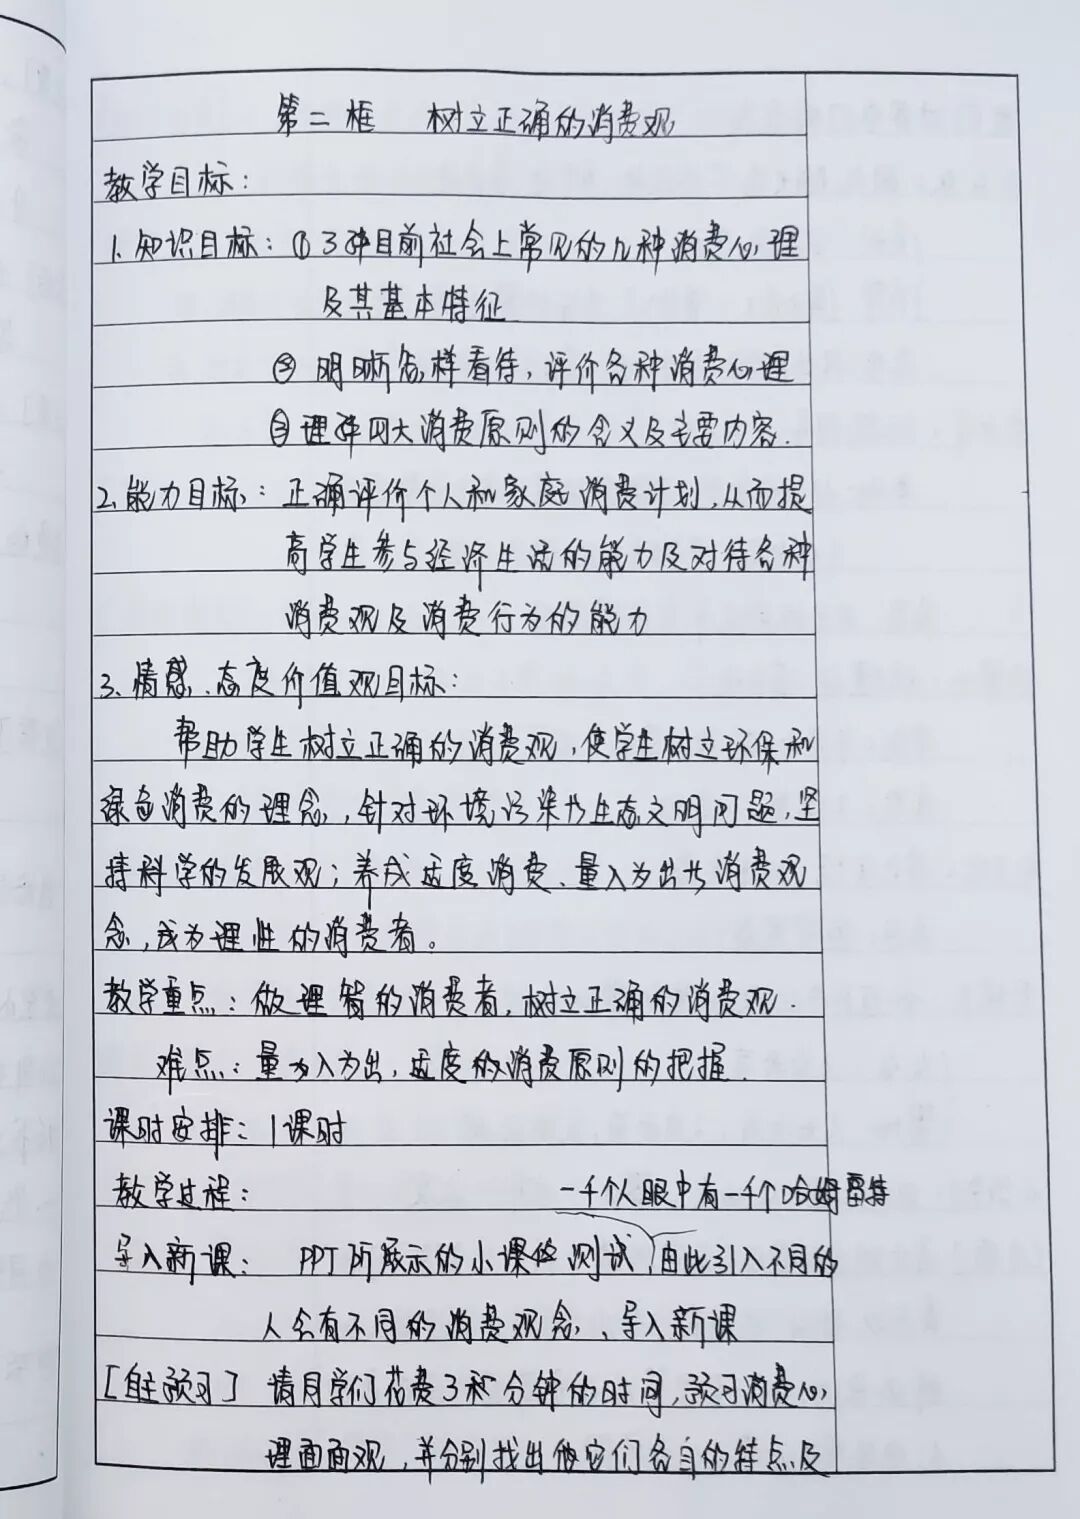 第二框 树立正确的消费观
教学目标:
1. 知识目标: ①了解目前社会上常见的几种消费心理
及其基本特征
② 明晰怎样看待,评价各种消费心理
③理解四大消费原则的含义及主要内容.
2. 能力目标: 正确评价个人和家庭消费计划,从而提
高学生参与经济生活的能力及对待各种
消费观及消费行为的能力
3、情感、态度价值观目标:
帮助学生树立正确的消费观,使学生树立环保和
绿色消费的理念,针对环境污染为生态文明问题,坚
持科学的发展观;养成适度消费、量入为出的消费观
念,成为理性的消费者。
教学重点: 做理智的消费者,树立正确的消费观.
难点: 量为入为出,适度的消费原则的把握.
课时安排: 1课时
教学过程: 一千个人眼中有一千个哈姆雷特
导入新课: PPT所展示的小课堂测试,由此引入不同的
人会有不同的消费观念、导入新课
[自主预习] 请同学们花费3分钟的时间,预习消费心
理面面观,并分别找出它们各自的特点及